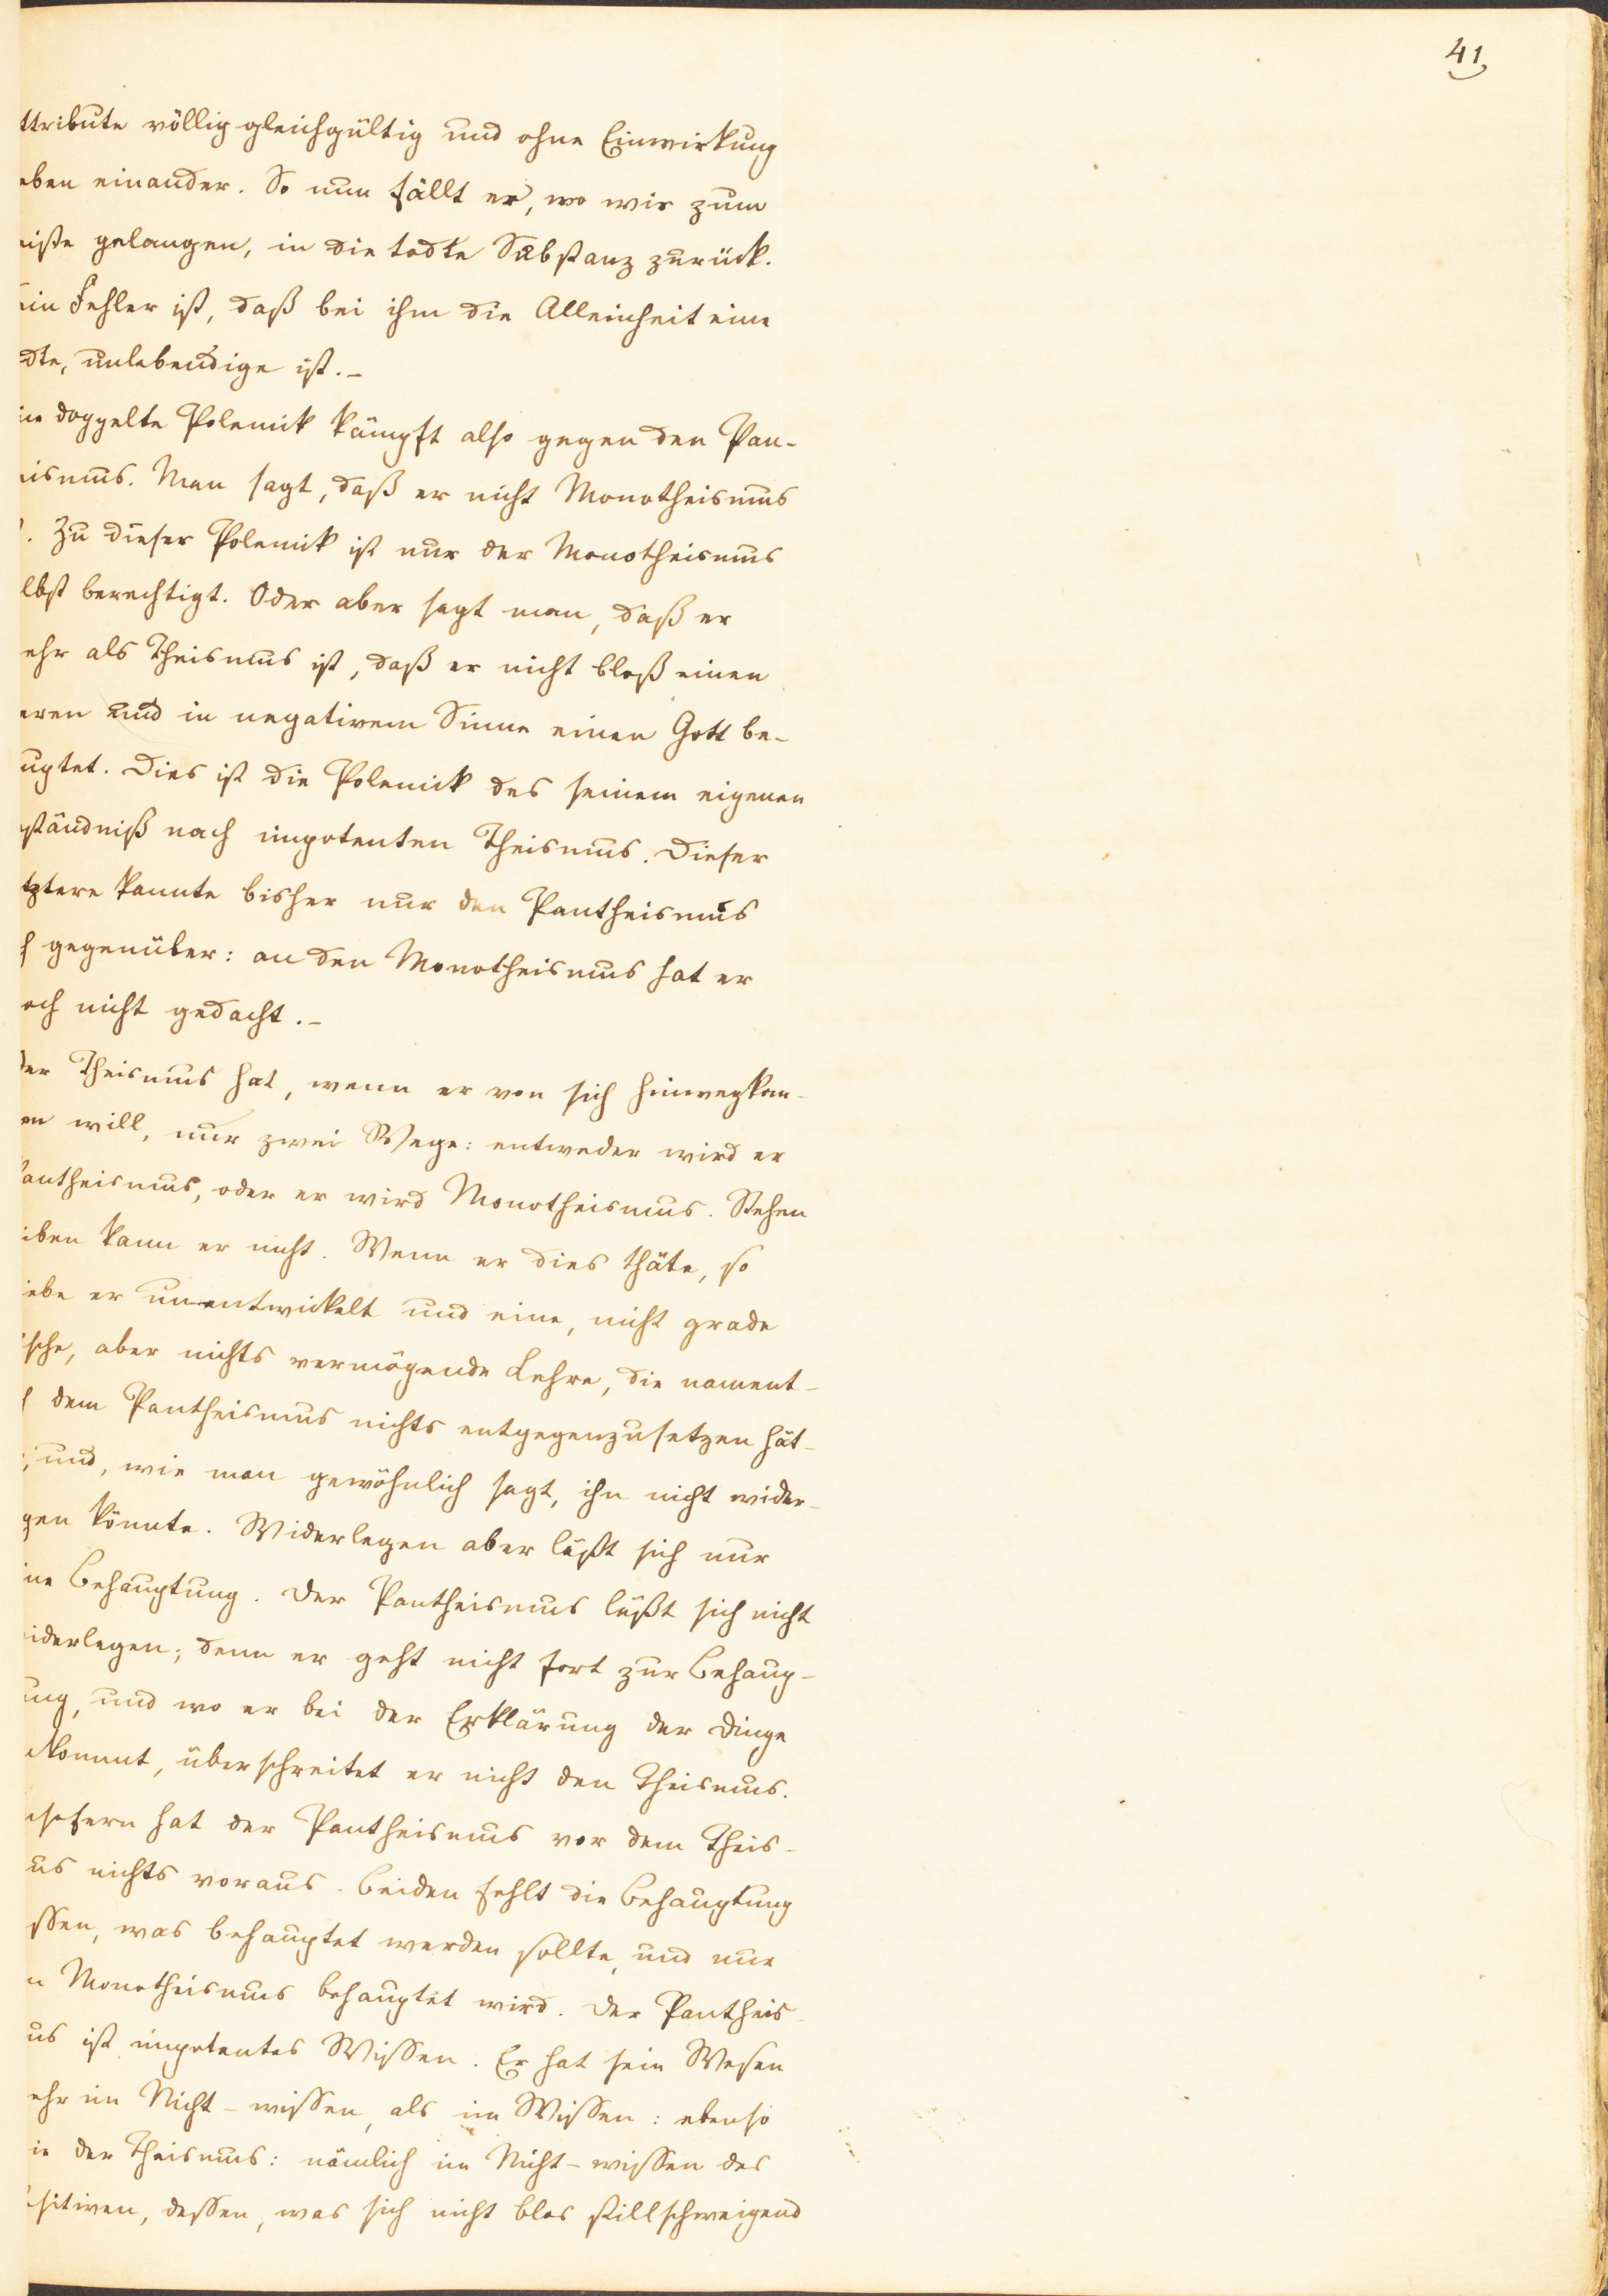 41
ttribute völlig gleichgültig und ohne Einwirkung
eben einander. So nun fällt er, wo wir zum
niße gelangen, in die todte Substanz zurück.
ein Fehler ist, daß bei ihm die Alleinheit eine
dte, unlebendige ist.–
ine doppelte Polemik kämpft also gegen den Pan-
eismus. Man sagt, daß er nicht Monotheismus
. Zu dieser Polemik ist nur der Monotheismus
lbst berechtigt. Oder aber sagt man, daß er
ehr als Theismus ist, daß er nicht bloß einen
eren und in negativem Sinne einen Gott be-
uptet. Dies ist die Polemik des seinem eigenen
ständniß nach impotenten Theismus. Dieser
tztere kannte bisher nur den Pantheismus
h gegenüber: an den Monotheismus hat er
och nicht gedacht.–
Der Theismus hat, wenn er von sich hinwegkom-
en will, nur zwei Wege: entweder wird er
Pantheismus, oder er wird Monotheismus. Stehen
iben kann er nicht. Wenn er dies thäte, so
iebe er unentwickelt und eine, nicht grade
lsche, aber nichts vermögende Lehre, die nament-
h dem Pantheismus nichts entgegenzusetzen hät-
, und, wie man gewöhnlich sagt, ihn nicht wider-
gen könnte. Widerlegen aber läßt sich nur
ine Behauptung. Der Pantheismus läßt sich nicht
iderlegen; denn er geht nicht fort zur Behaup-
ung, und wo er bei der Erklärung der Dinge
nkommt, überschreitet er nicht den Theismus.
nsofern hat der Pantheismus vor dem Theis-
us nichts voraus. Beiden fehlt die Behauptung
ssen, was behauptet werden sollte, und nur
n Monotheismus behauptet wird. Der Pantheis-
us ist impotentes Wissen. Er hat sein Wesen
ehr im Nicht-wissen, als im Wissen: ebenso
ie der Theismus: nämlich im Nicht-wissen des
ositiven, dessen, was sich nicht blos stillschweigend